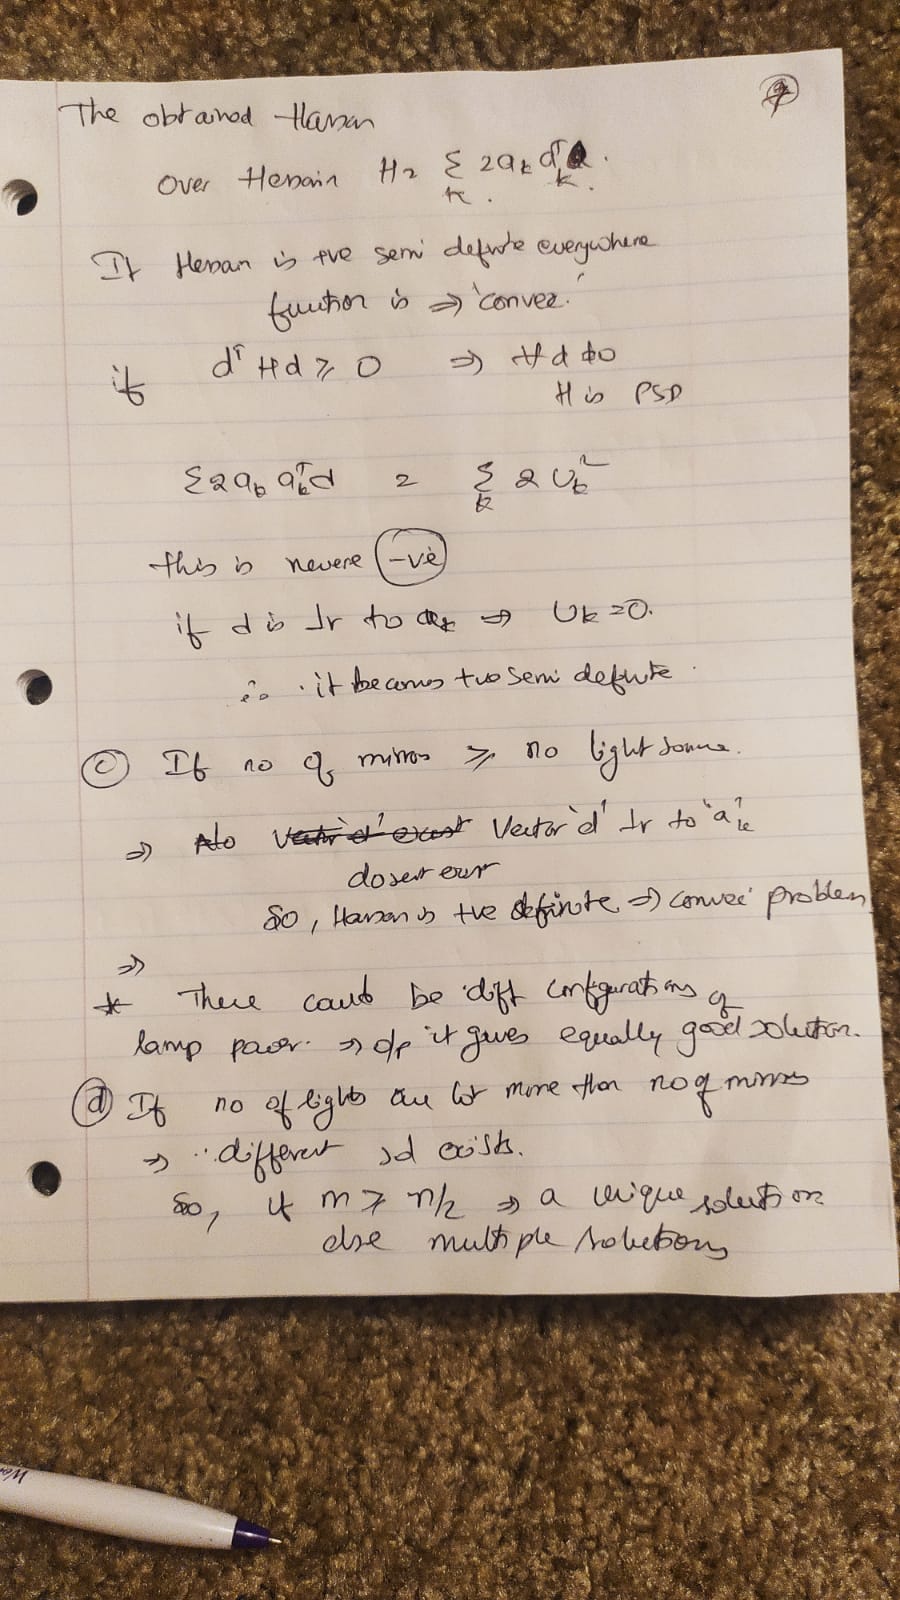 The obtained Hessan
Over Hessain H = Σ_k 2a_k d_k^T
If Hessan is +ve semi definite everywhere
function is ⇒ 'convex.'
if d^T H d ≥ 0 ⇒ ∀ d ≠ 0
H is PSD
Σ 2 a_k a_k^T d = Σ_k 2 U_k^2
this is nevere -ve
if d is ⊥r to a_k ⇒ U_k = 0.
∴ it becomes +ve semi definite.
(c) If no of mirros ≥ no light source.
⇒ No Vector 'd' exist Vector 'd' ⊥r to 'a_k'
dosent exist
So, Hessan is +ve definite ⇒ convex problem
⇒
* There could be diff configurations of
lamp power ⇒ o/p it gives equally good solution.
(d) If no of lights are lot more than no of mirros
⇒ different exists.
So, if m ≥ n/2 ⇒ a unique solution
else multiple solutions